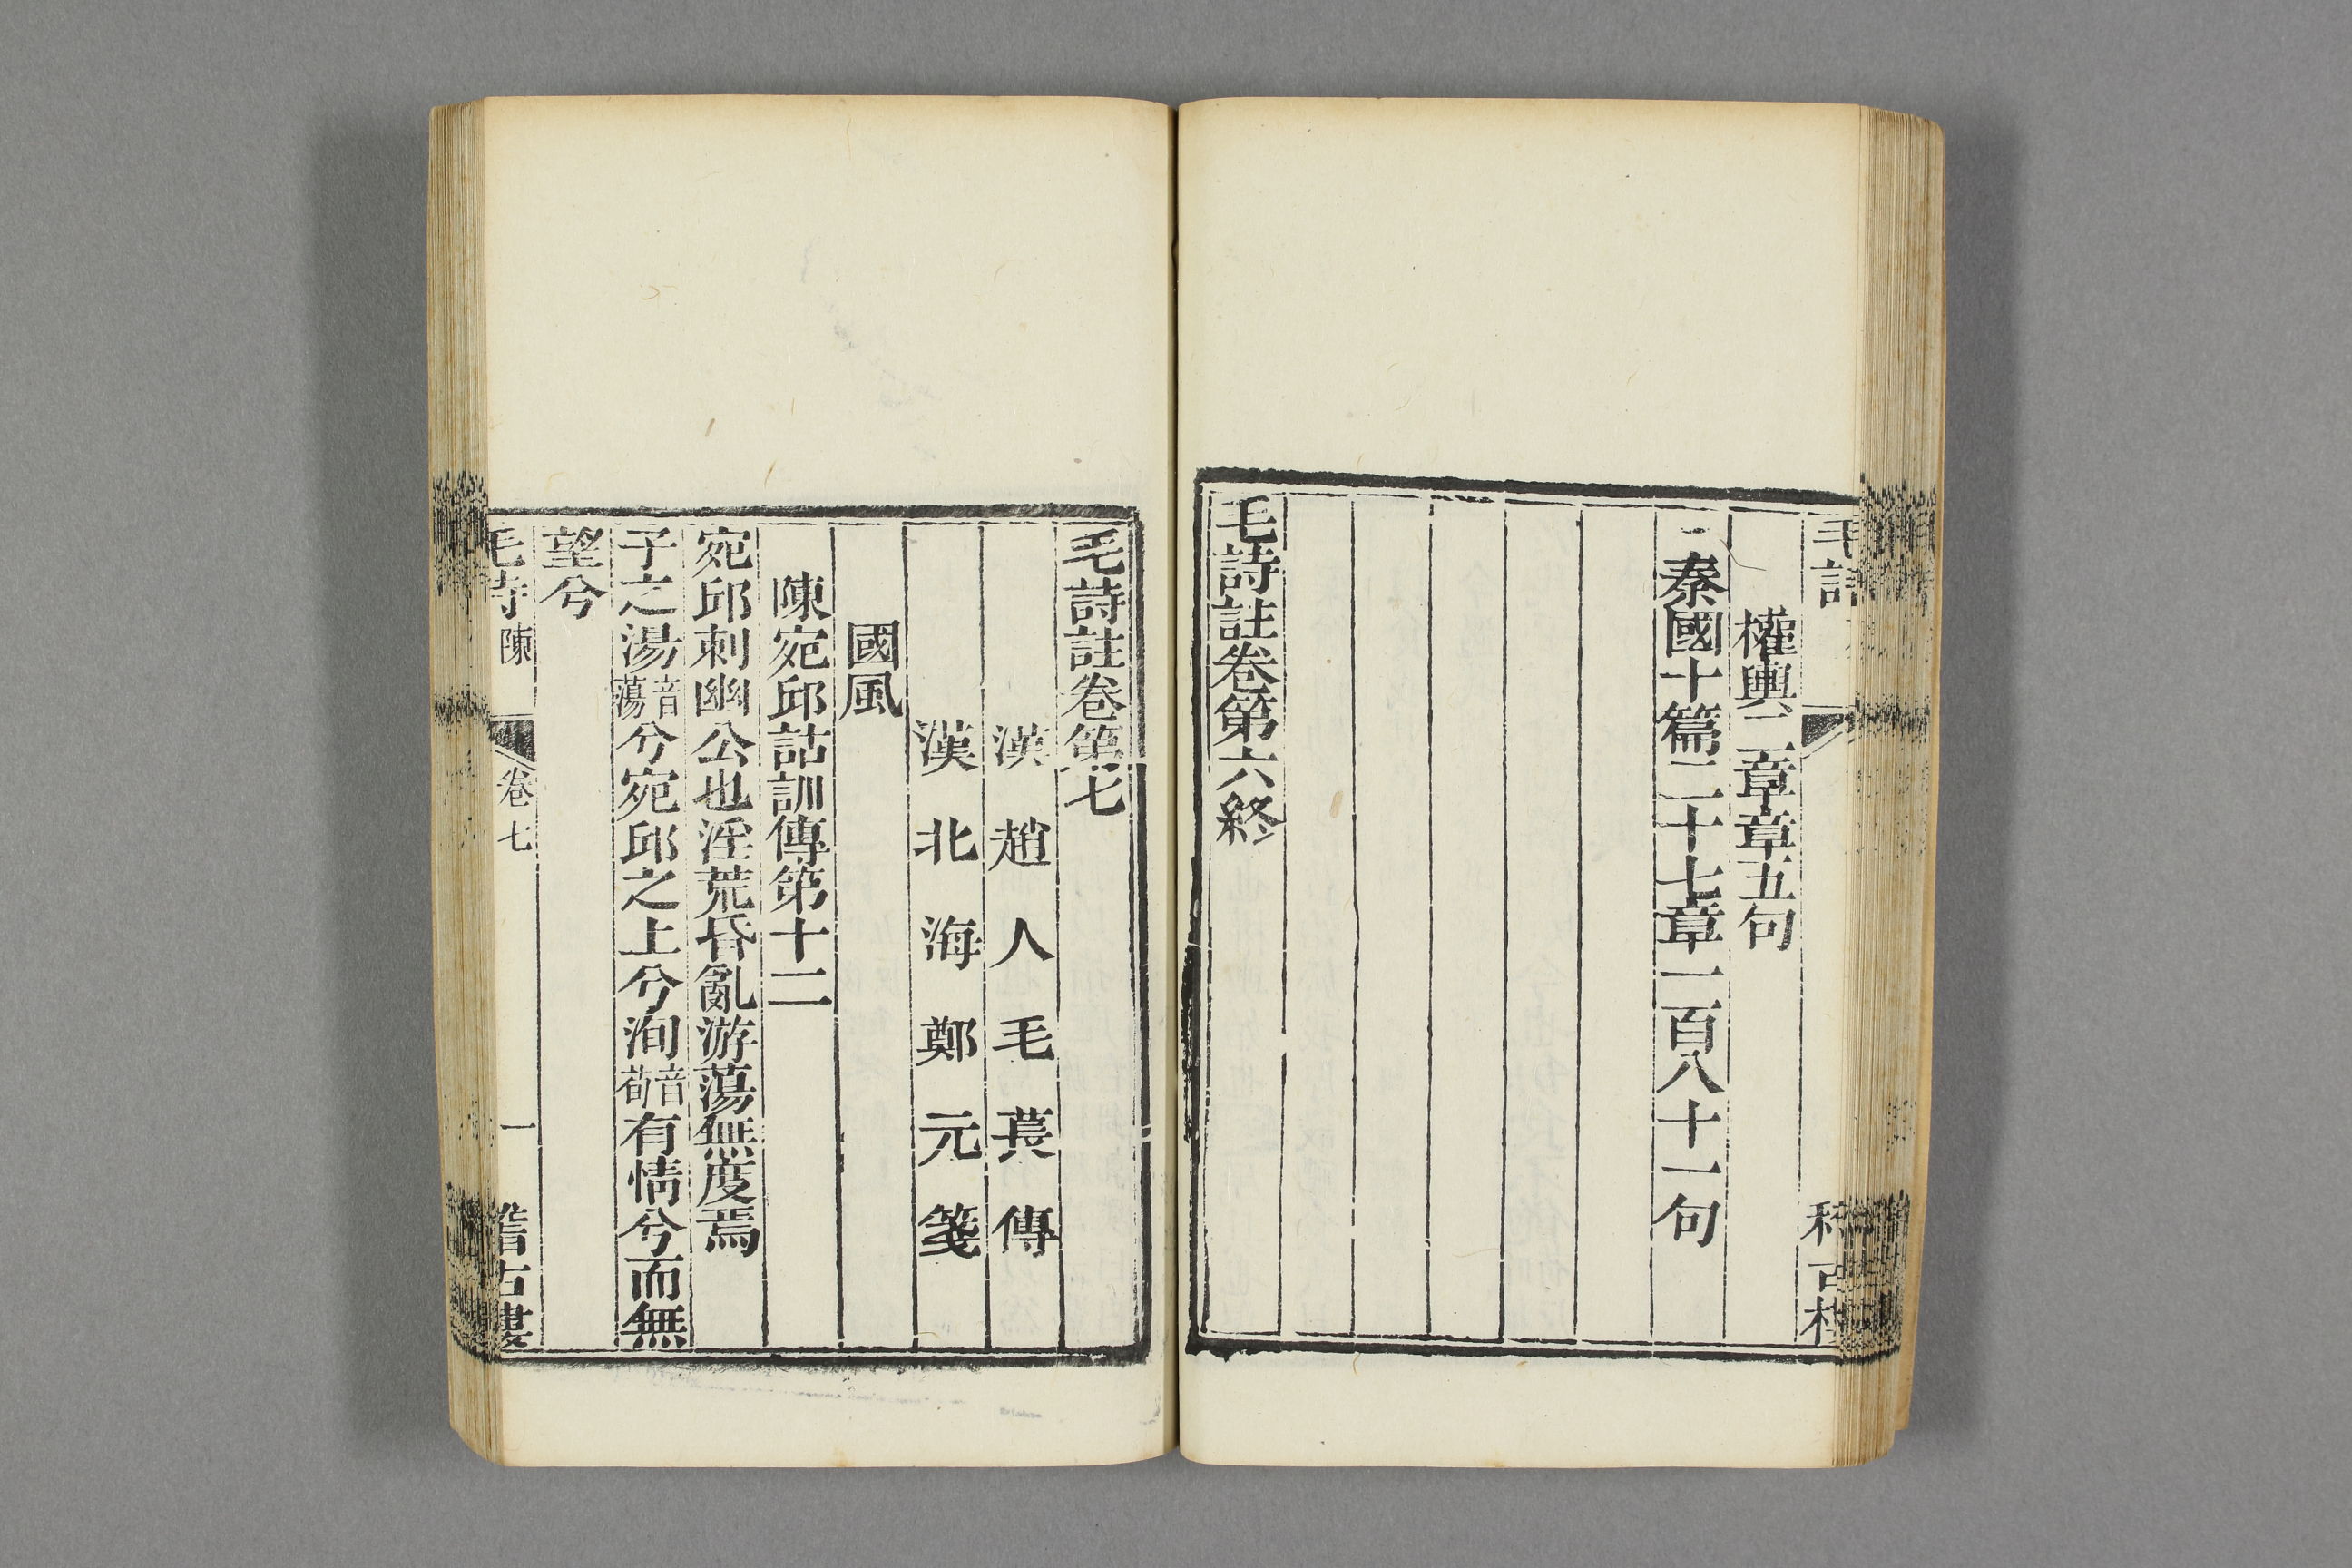 毛詩
稽古樓
權輿二章章五句
秦國十篇二十七章一百八十一句
毛詩註卷第六終
毛詩註卷第七
漢趙人毛萇傳
漢北海鄭元箋
國風
陳宛邱詁訓傳第十二
宛邱刺幽公也淫荒昏亂游蕩無度焉
子之湯音蕩兮宛邱之上兮洵音荀有情兮而無
望兮
毛詩 陳 卷七 一 稽古樓